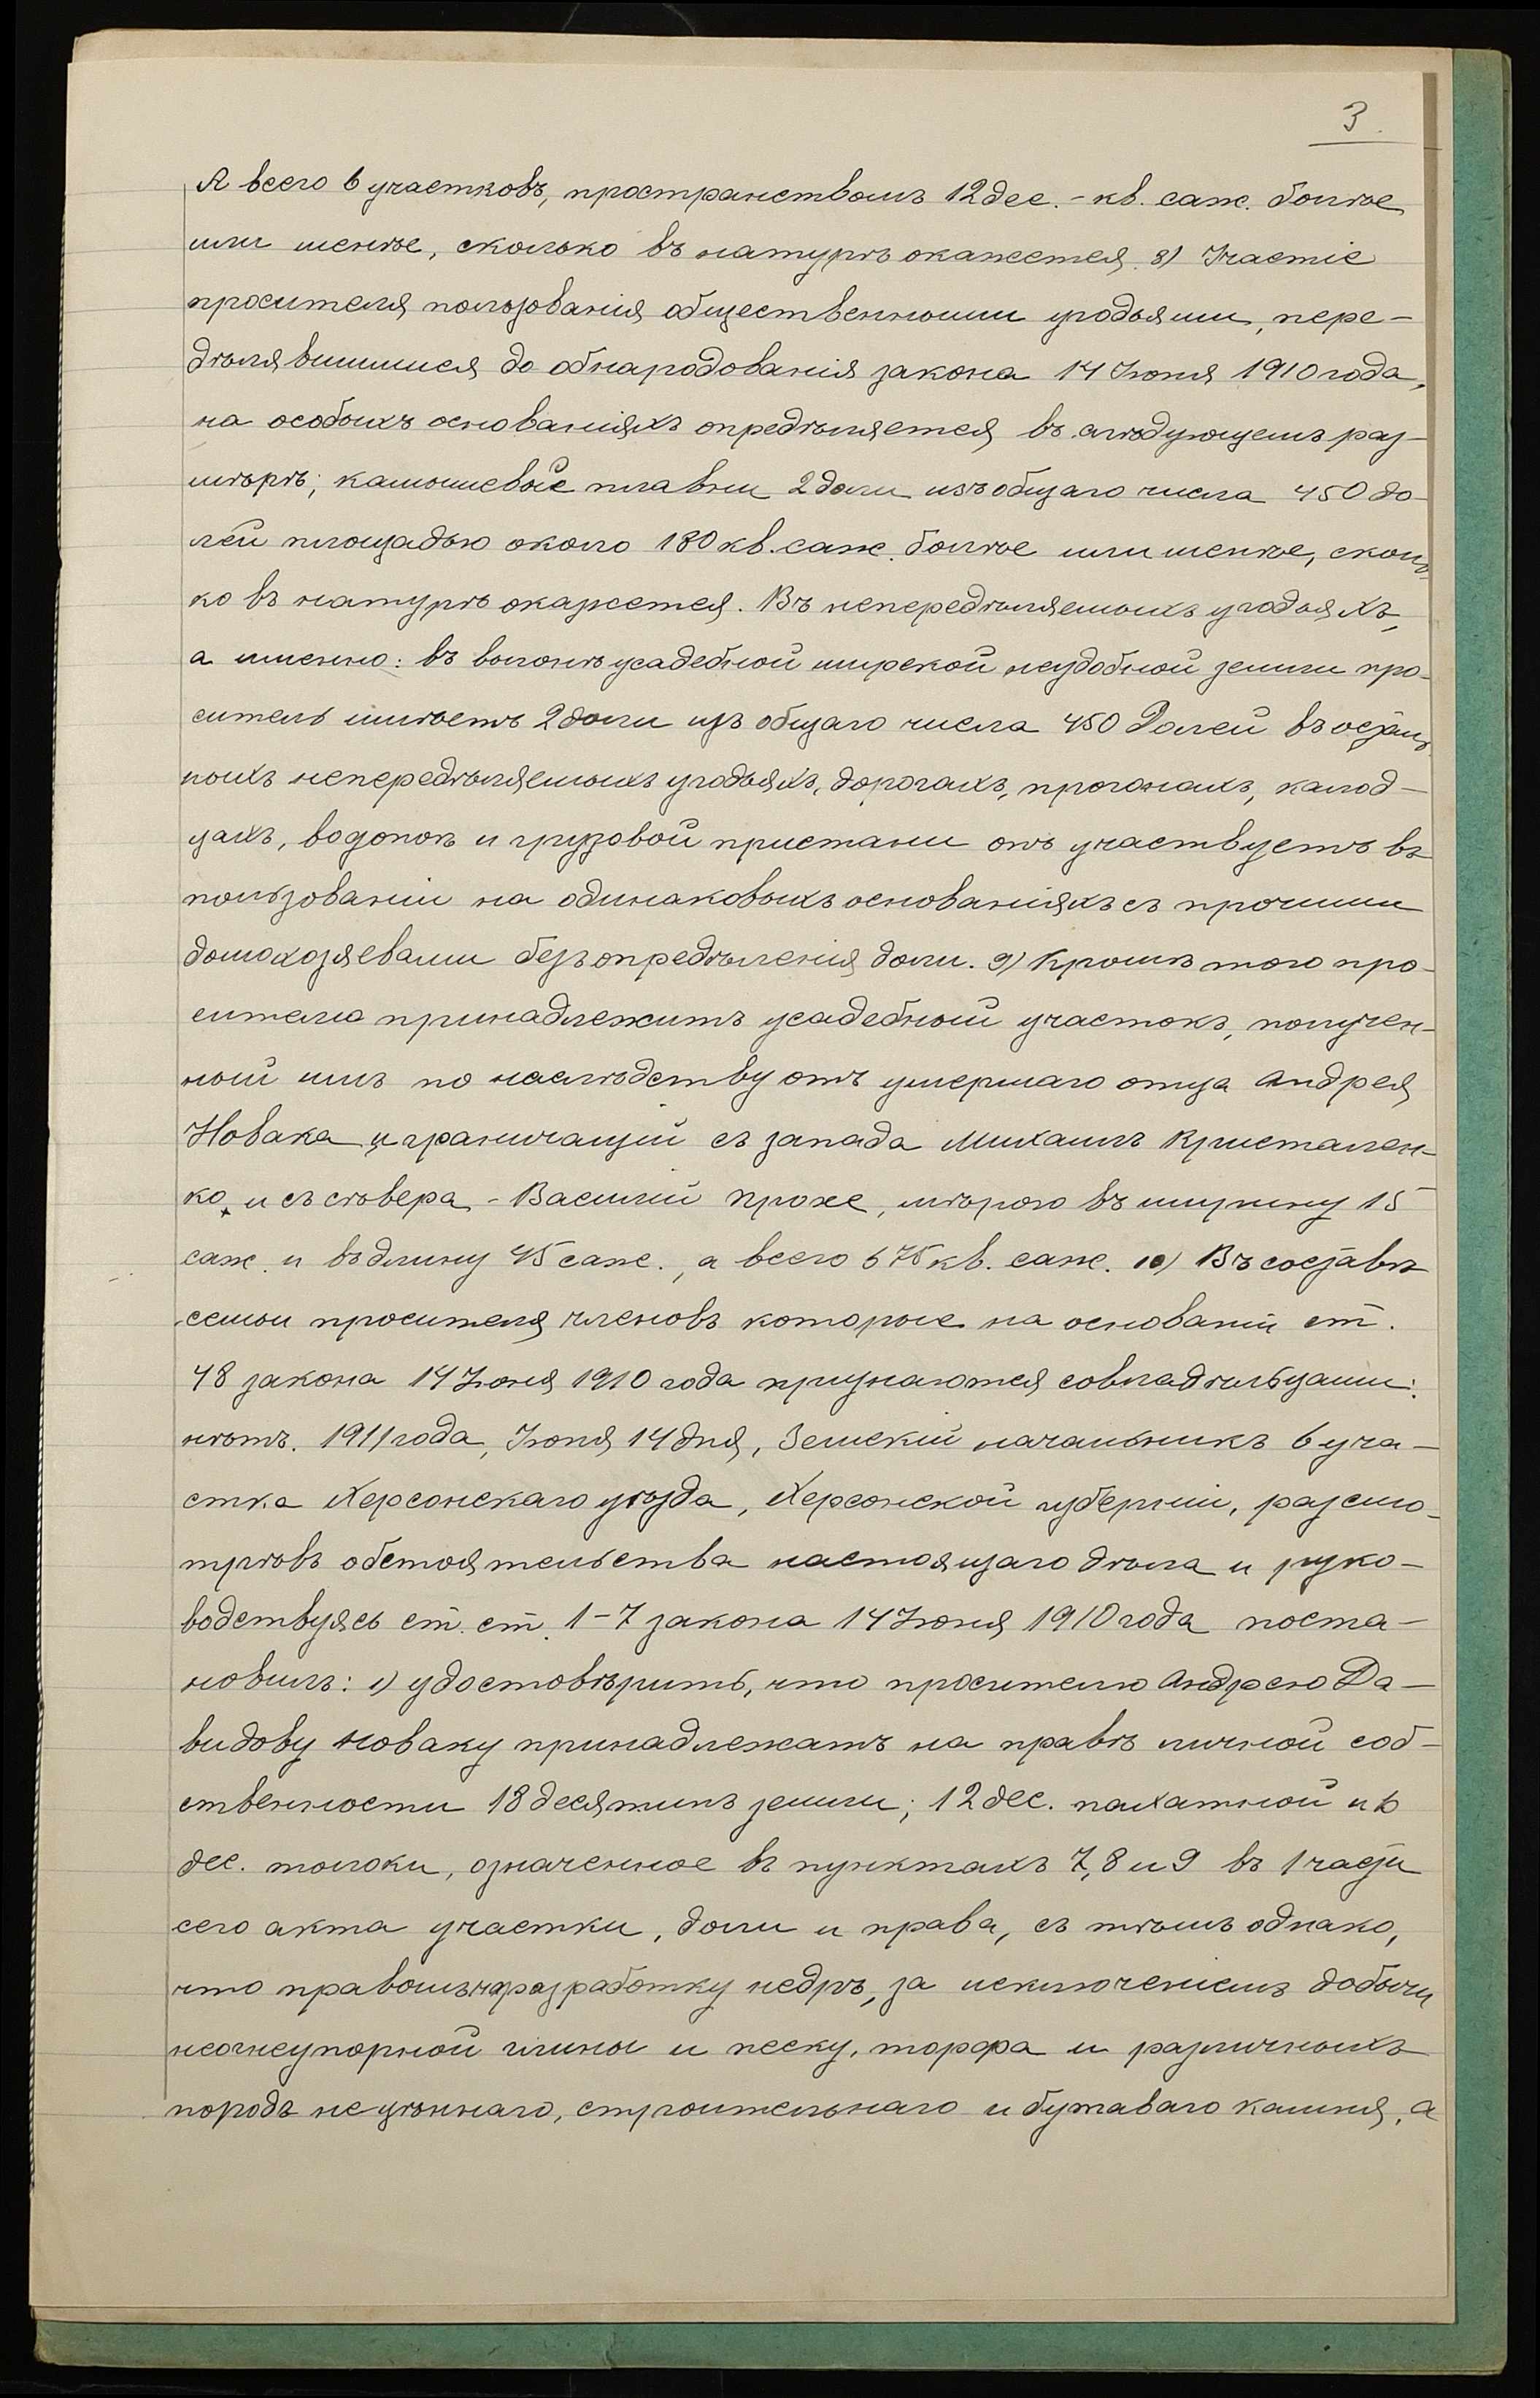 3.
А всего 6 участковъ, пространствомъ 12 дес. - кв. саж. болѣе
или менѣе, сколько въ натурѣ окажется. 8) Участіе
просителя пользованія общественными угодьями, пере-
дѣлявшимися до обнародованія закона 14 Іюня 1910 года,
на особыхъ основаніяхъ опредѣляется въ слѣдующемъ раз-
мѣрѣ; камышевые плавни 2 доли изъ общаго числа 450 до-
лей площадью около 180 кв. саж. болѣе или менѣе, сколь-
ко въ натурѣ окажется. Въ непередѣляемыхъ угодьяхъ,
а именно: въ выгонѣ усадебной мирской неудобной земли про-
ситель имѣетъ 2 доли изъ общаго числа 450 Долей въ осталь-
ныхъ непередѣляемыхъ угодьяхъ, дорогахъ, прогонахъ, калод-
цахъ, водопоѣ и грузовой пристани онъ участвуетъ въ
пользованіи на одинаковыхъ основаніяхъ съ прочими
домохозяевами безъ опредѣленія доли. 9) Кромѣ того про-
сителю принадлежитъ усадебный участокъ, получен-
ный имъ по наслѣдству отъ умершаго отца Андрея
Новака и граничащій съ запада Михаилъ Кристален-
ко и съ сѣвера - Василій Проже, мѣрою въ ширину 15
саж. и въ длину 45 саж., а всего 675 кв. саж. 10) Въ составѣ
семьи просителя членовъ которые на основаніи ст.
48 закона 14 Іюня 1910 года признаются совладѣльцами:
нѣтъ. 1911 года, Іюня 14 дня, Земскій начальникъ 6 уча-
стка Херсонскаго уѣзда, Херсонской губерніи, разсмо-
трѣвъ обстоятельства настоящаго дѣла и руко-
водствуясь ст. ст. 1-7 закона 14 Іюня 1910 года поста-
новилъ: 1) удостовѣрить, что просителю Андрею Да-
видову Новаку принадлежатъ на правѣ личной соб-
ственности 18 десятинъ земли; 12 дес. пахатной и 6
дес. толоки, означенное въ пунктахъ 7, 8 и 9 въ 1 части
сего акта участки, доли и права, съ тѣмъ однако,
что правомъ на разработку недръ, за исключеніемъ добычи
неогнеупорной глины и песку, торфа и различныхъ
породъ нецѣннаго, строительнаго и бутаваго камня, а